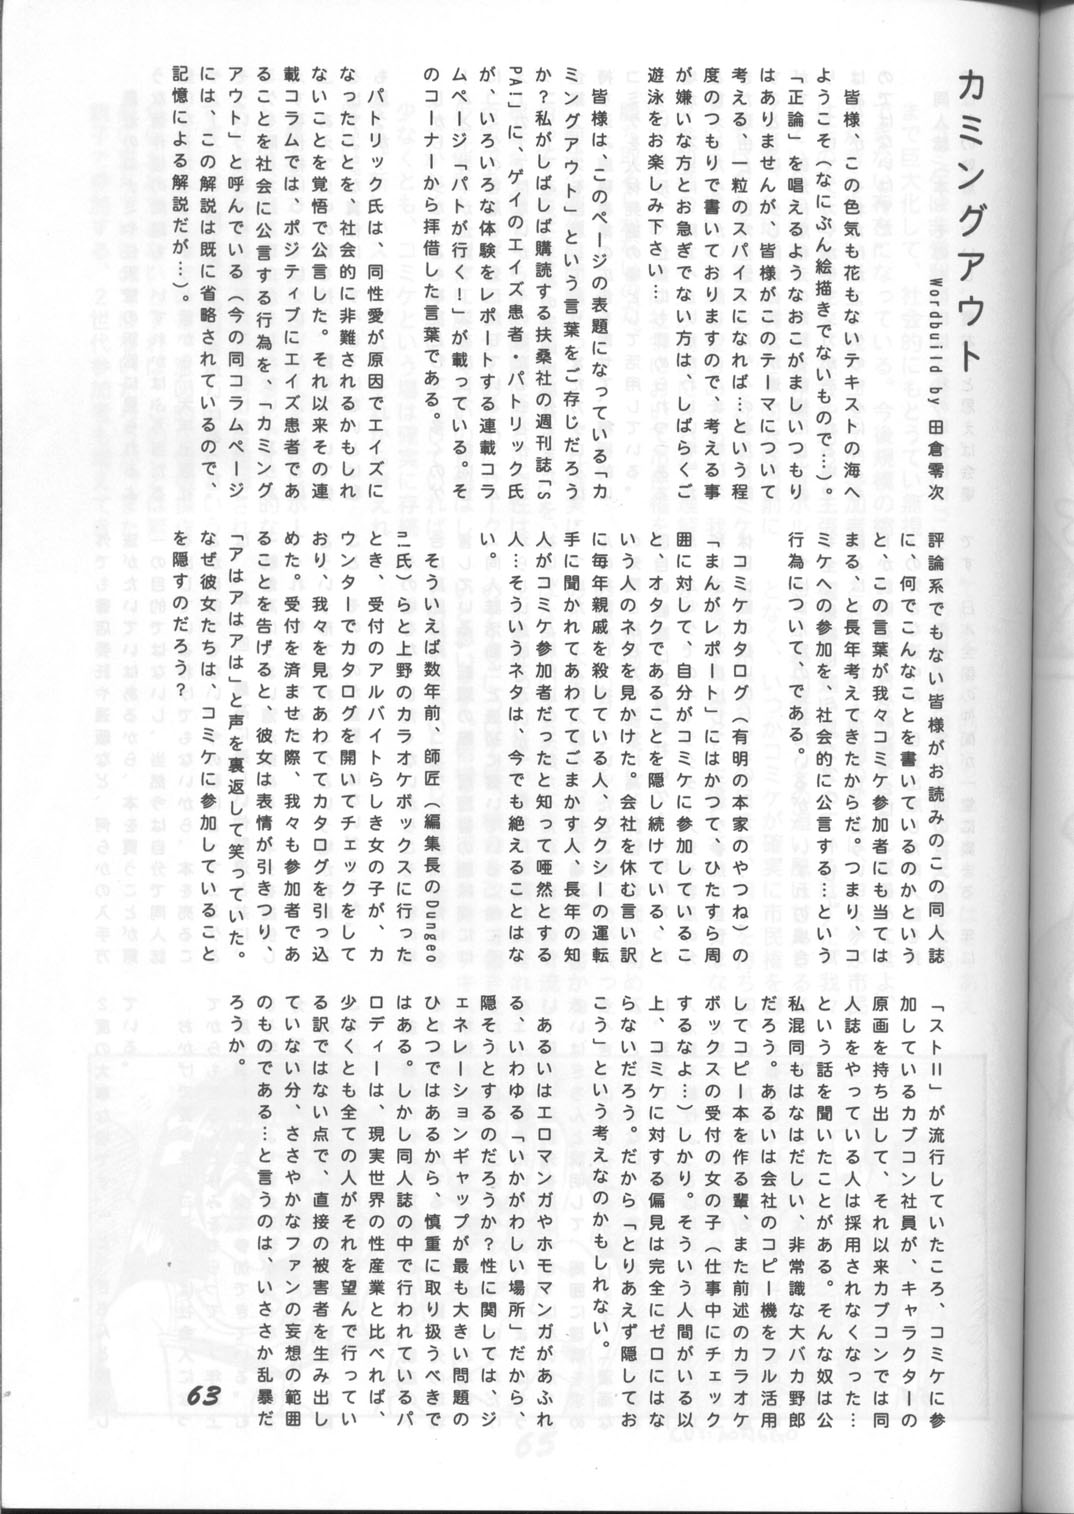 カミングアウト
Wordbuild by 田倉零次
皆様、この色気も花もないテキストの海へ
ようこそ（なにぶん絵描きでないもので…）。
「正論」を唱えるようなおこがましいつもり
はありませんが、皆様がこのテーマについて
考える、一粒のスパイスになれば…という程
度のつもりで書いておりますので、考える事
が嫌いな方とお急ぎでない方は、しばらくご
遊泳をお楽しみ下さい…
皆様は、このページの表題になっている「カ
ミングアウト」という言葉をご存じだろう
か？私がしばしば購読する扶桑社の週刊誌「S
PA!」に、ゲイのエイズ患者・パトリック氏
が、いろいろな体験をレポートする連載コラ
ムページ「パトが行く！」が載っている。そ
のコーナーから拝借した言葉である。
パトリック氏は、同性愛が原因でエイズに
なったことを、社会的に非難されるかもしれ
ないことを覚悟で公言した。それ以来その連
載コラムでは、ポジティブにエイズ患者であ
ることを社会に公言する行為を、「カミング
アウト」と呼んでいる（今の同コラムページ
には、この解説は既に省略されているので、
記憶による解説だが…）。
評論系でもない皆様がお読みのこの同人誌
に、何でこんなことを書いているのかという
と、この言葉が我々コミケ参加者にも当ては
まる、と長年考えてきたからだ。つまり、コ
ミケへの参加を、社会的に公言する…という
行為について、である。
コミケカタログ（有明の本家のやつね）の
「まんがレポート」にはかつて、ひたすら周
囲に対して、自分がコミケに参加しているこ
と、オタクであることを隠し続けている、と
いう人のネタを見かけた。会社を休む言い訳
に毎年親戚を殺している人、タクシーの運転
手に聞かれてあわててごまかす人、長年の知
人がコミケ参加者だったと知って唖然とする
人…そういうネタは、今でも絶えることはな
い。
そういえば数年前、師匠（編集長のDungeo
n!氏）らと上野のカラオケボックスに行った
とき、受付のアルバイトらしき女の子が、カ
ウンターでカタログを開いてチェックをして
おり、我々を見てあわててカタログを引っ込
めた。受付を済ませた際、我々も参加者であ
ることを告げると、彼女は表情が引きつり、
「アはアはアは」と声を裏返して笑っていた。
なぜ彼女たちは、コミケに参加していること
を隠すのだろう？
「ストII」が流行していたころ、コミケに参
加しているカプコン社員が、キャラクターの
原画を持ち出して、それ以来カプコンでは同
人誌をやっている人は採用されなくなった…
という話を聞いたことがある。そんな奴は公
私混同もはなはだしい、非常識な大バカ野郎
だろう。あるいは会社のコピー機をフル活用
してコピー本を作る輩、また前述のカラオケ
ボックスの受付の女の子（仕事中にチェック
するなよ…）しかり。そういう人間がいる以
上、コミケに対する偏見は完全にゼロにはな
らないだろう。だから「とりあえず隠してお
こう」という考えなのかもしれない。
あるいはエロマンガやホモマンガがあふれ
る、いわゆる「いかがわしい場所」だから、
隠そうとするのだろうか？性に関しては、ジ
ェネレーションギャップが最も大きい問題の
ひとつではあるから、慎重に取り扱うべきで
はある。しかし同人誌の中で行われているパ
ロディーは、現実世界の性産業と比べれば、
少なくとも全ての人がそれを望んで行ってい
る訳ではない点で、直接の被害者を生み出し
ていない分、ささやかなファンの妄想の範囲
のものである…と言うのは、いささか乱暴だ
ろうか。
63